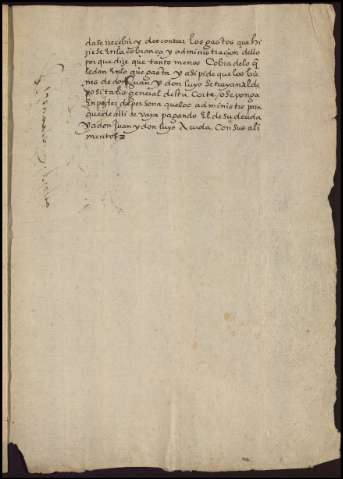 dase recibir y descontar los gastos que hi
ziese en la cobranza y administracion dello
por que dize que tanto menos Cobra de lo q̃
le dan en lo que gasta y assi pide que los bie
nes de don Juan y don luys se trayan al de
positario general desta Corte, o se ponga
en poder de persona que los administre para
que de alli se vaya pagando el de su deuda
y a don Juan y don luys acuda. Con sus ali
mentos